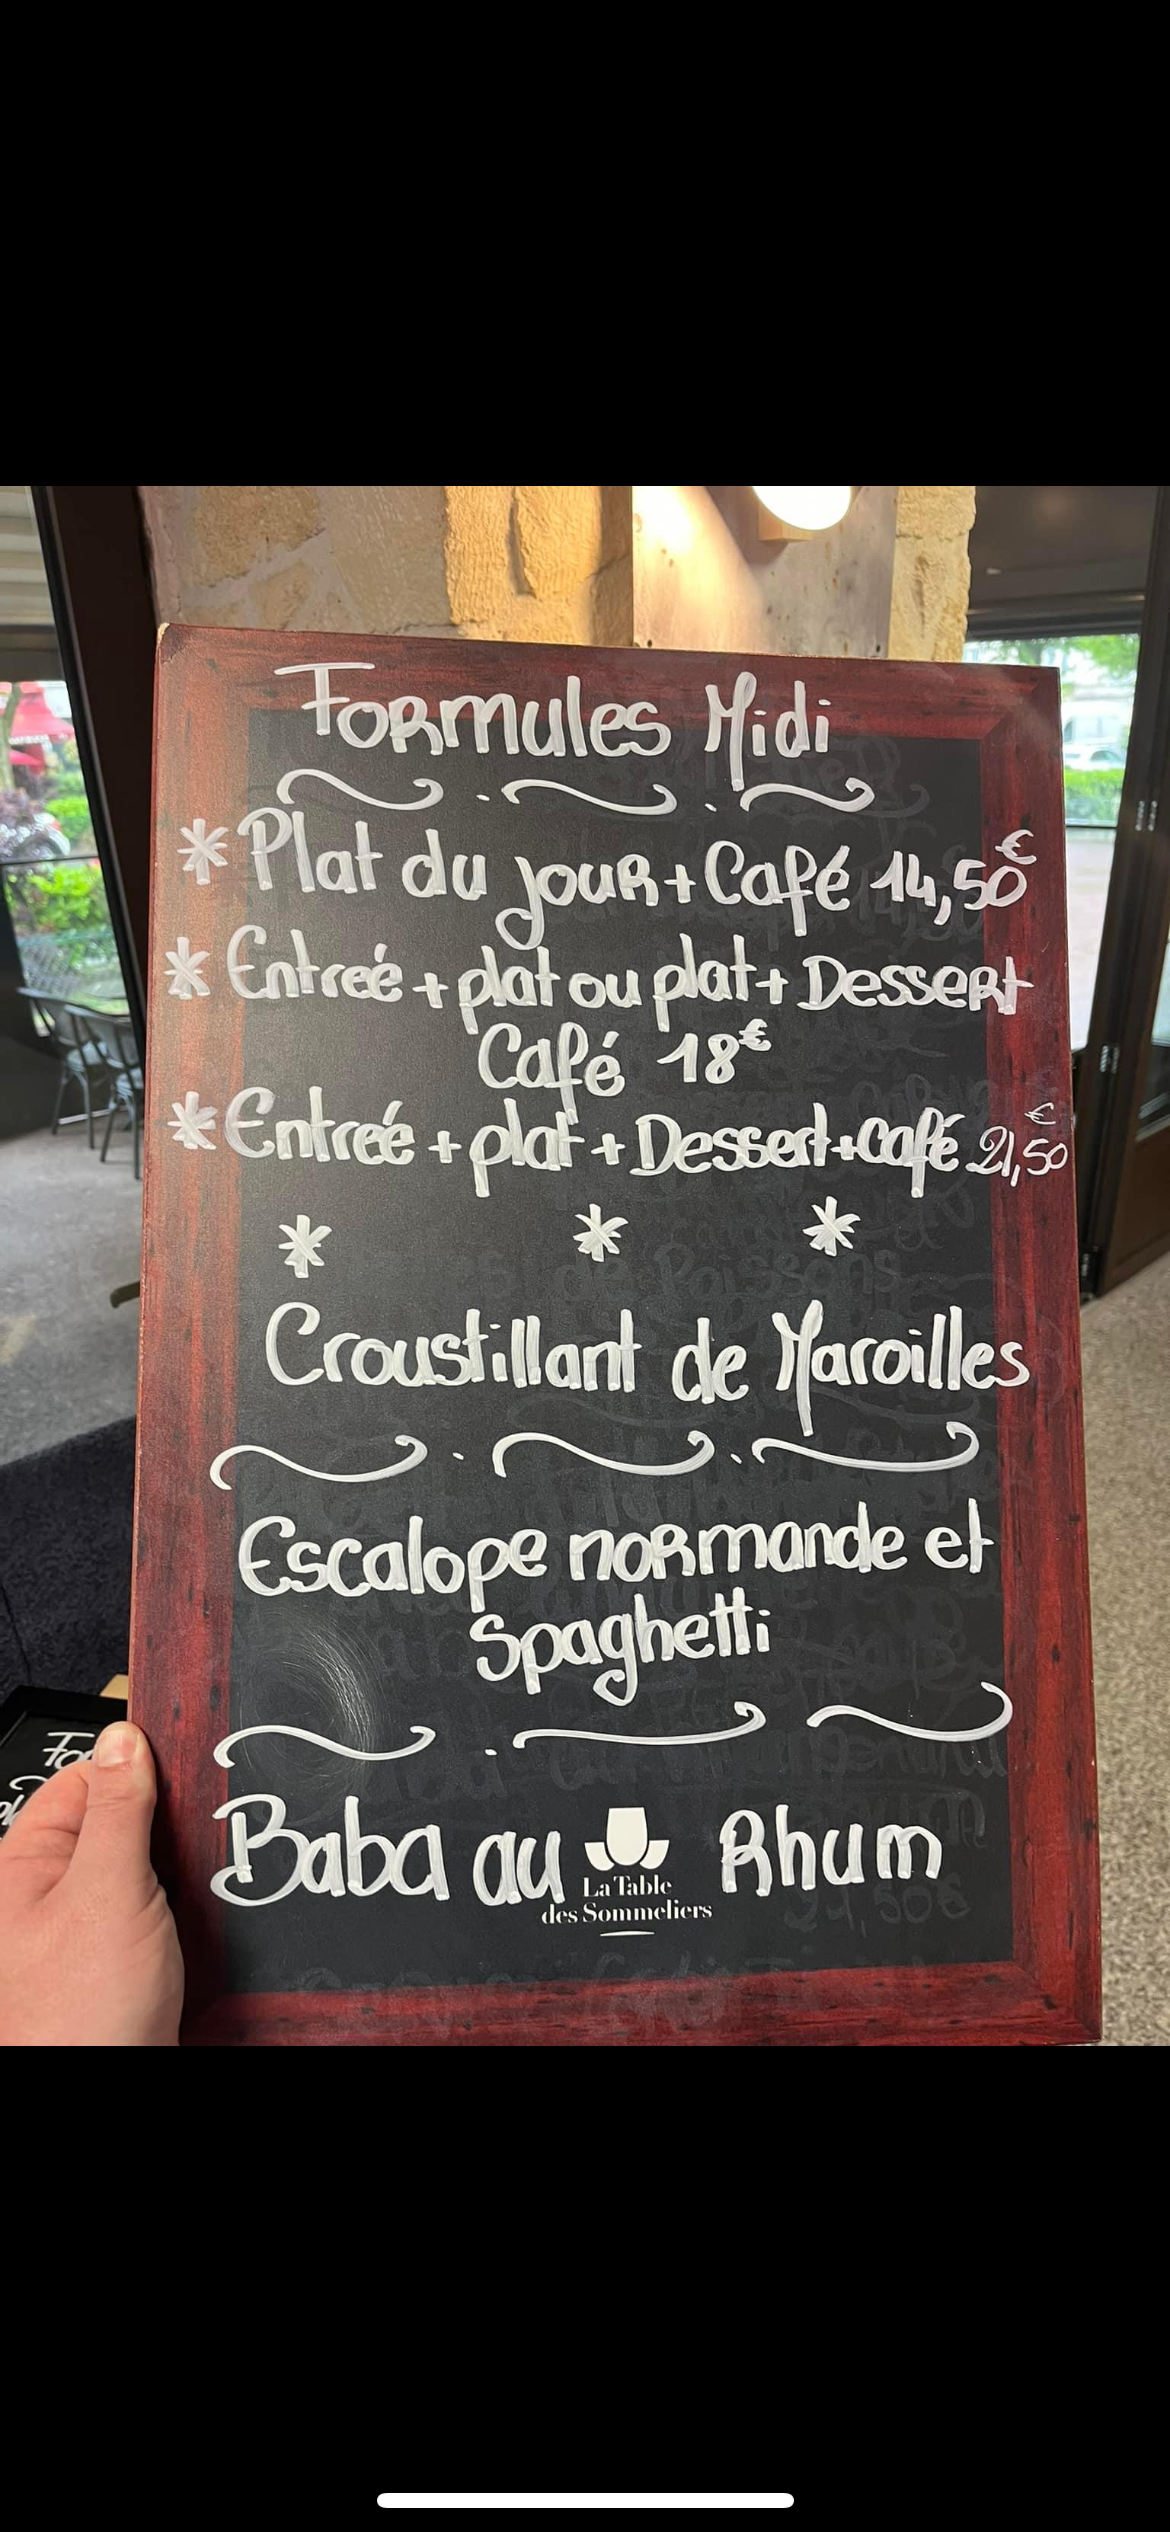 Formules Midi
* Plat du jour + Café 14,50€
* Entreé + plat ou plat + Dessert
Café 18€
* Entreé + plat + Dessert + Café 21,50€
* * *
Croustillant de Maroilles
Escalope normande et
Spaghetti
Baba au Rhum
La Table
des Sommeliers